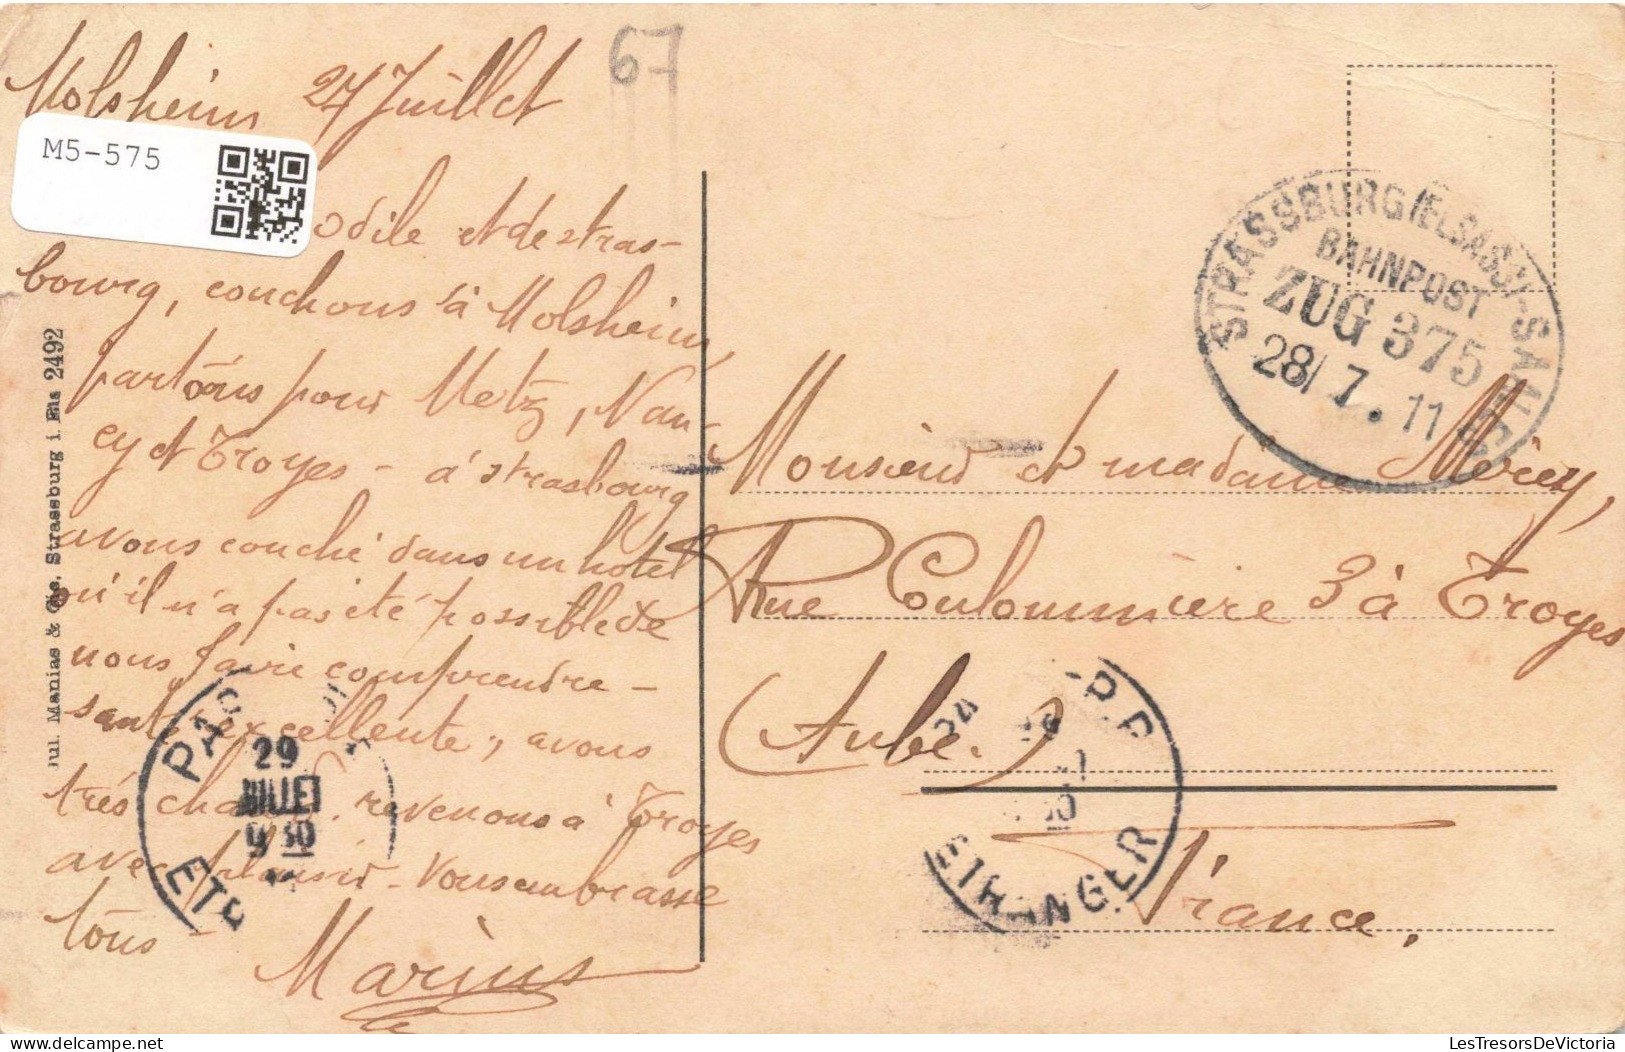 67
Molsheim 27 Juillet
M5-575
odile et de stras-
bourg, couchons à Molsheim,
partons pour Metz, Nan-
cy et Troyes - à strasbourg
avons couché dans un hotel
qu'il n'a pas été possible de
nous faire comprendre -
santé excellente, avons
très chaud. revenons à Troyes
avec plaisir - Vous embrasse
tous -
Marius
Jul. Manias & Cie. Strassburg i. Els 2492
STRASSBURG (ELSASS)-SAALES
BAHNPOST
ZUG 375
28/7.11
Monsieur et madame Mérey,
Rue Coulommière 3 à Troyes
(Aube)
France.
29
JUILLET
9 30
ETRANGER
LesTresorsDeVictoria
www.delcampe.net